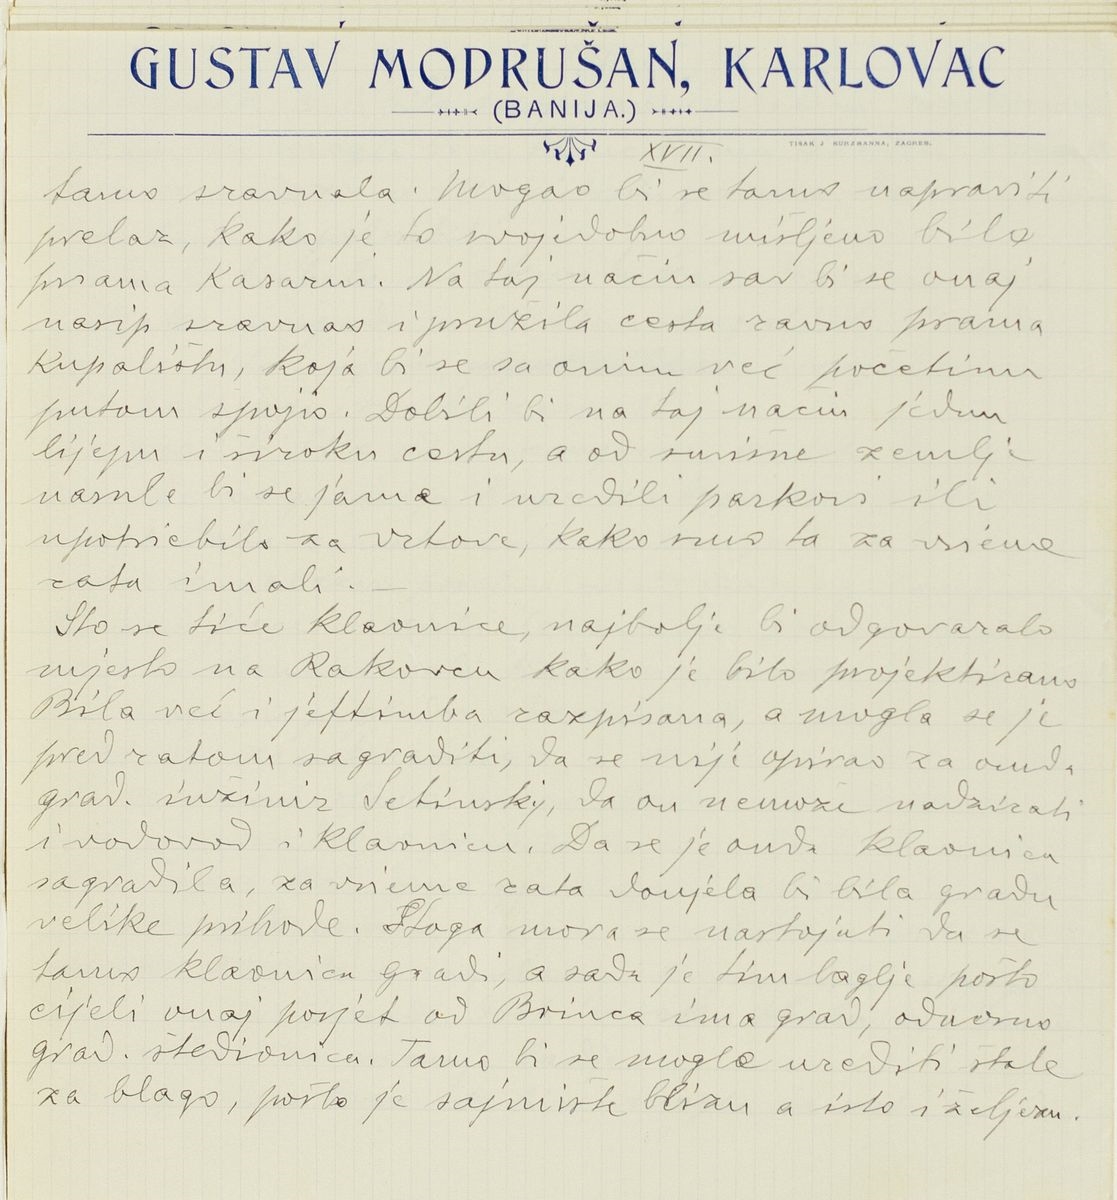 GUSTAV MODRUŠAN, KARLOVAC
(BANIJA.)
TISAK J KURZHANNA, ZAGREB.
XVII.
tamo sravnala. Mogao bi se tamo napraviti
prelaz, kako je to svojedobno mišljeno bilo
prama Kasarni. Na taj način sav bi se onaj
nasip sravnao i pružila cesta ravno prama
Kupalištu, koja bi se sa onim već početim
putom spojio. Dobili bi na taj nacin jednu
lijepu i široku cestu, a od suvišne zemlje
nasule bi se jame i uredili parkovi ili
upotriebilo za vrtove, kako smo to za vrieme
rata imali. —
Sto se tiče klaonice, najbolje bi odgovaralo
mjesto na Rakovcu kako je bilo projektirano
Bila već i jeftimba razpisana, a mogla se je
pred ratom sagraditi, da se nije opirao za onda
grad. inžinir Setinsky, da on nemože nadzirati
i vodovod i klaonicu. Da se je onda klaonica
sagradila, za vrieme rata donjela bi bila gradu
velike prihode. Stoga mora se nastojati da se
tamo klaonica gradi, a sada je tim laglje pošto
cijeli onaj posjet od Brinca ima grad, odnosno
grad. štedionica. Tamo bi se mogle urediti štale
za blago, pošto je sajmište blizu a isto i željezn.